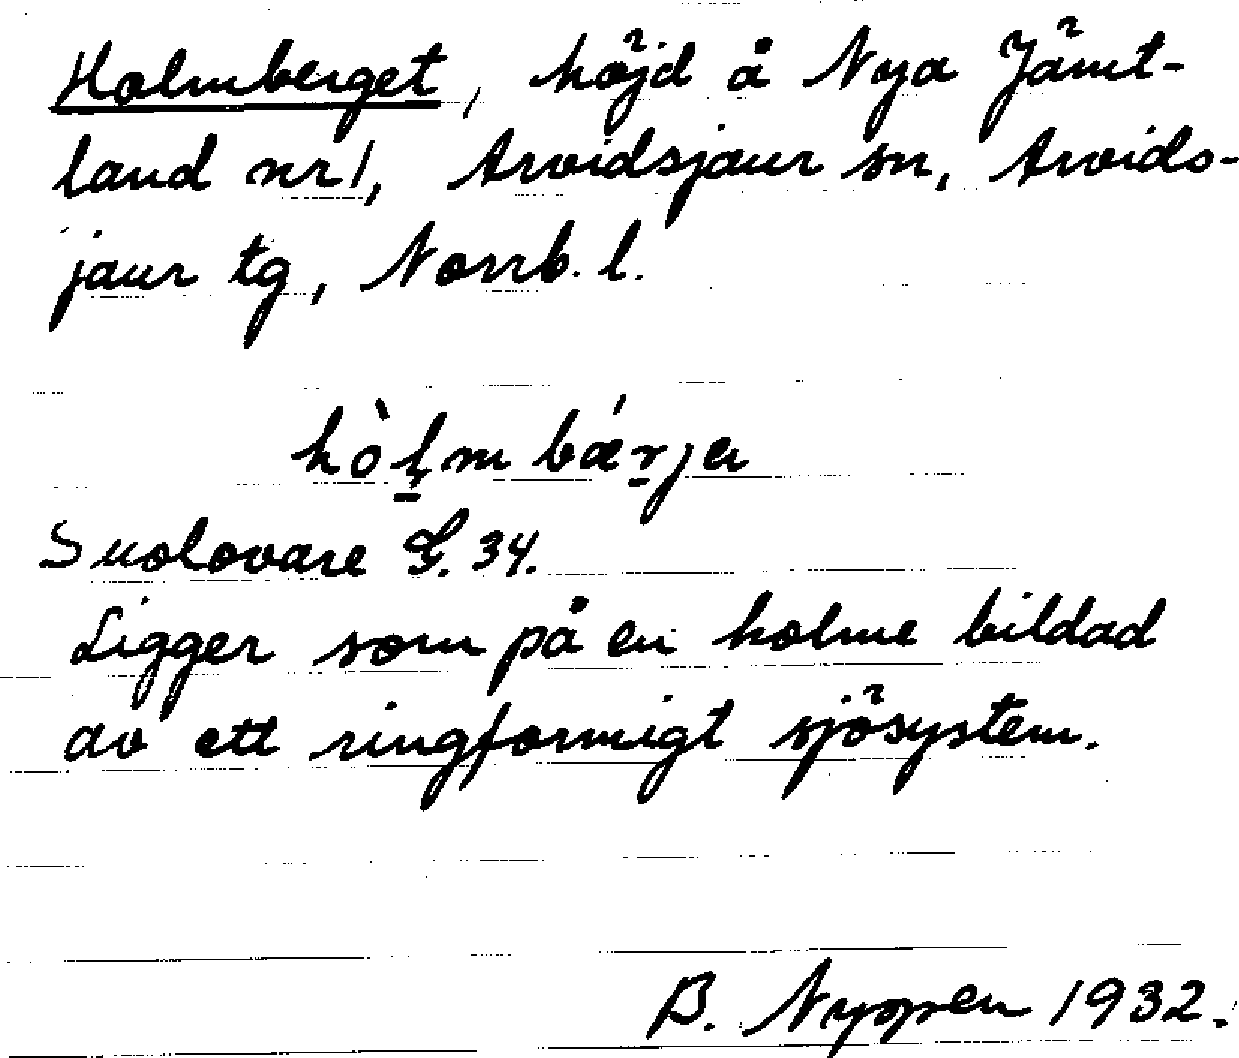 Holmberget, höjd å Nya Jämt-
land nr 1, Arvidsjaur sn, Arvids-
jaur tg, Norrb. l.
hòḷm bǽrja
Suolovare G. 34.
Ligger som på en holme bildad
av ett ringformigt sjösystem.
B. Nyppen 1932.